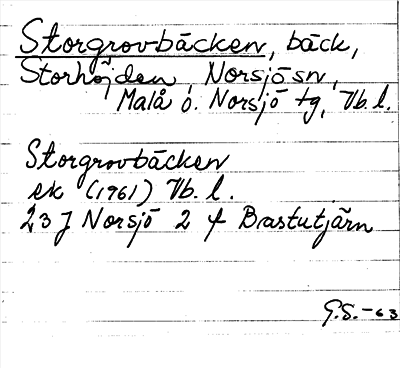 Storgrovbäcken, bäck,
Storhöjden, Norsjö sn,
Malå o. Norsjö tg, Vb. l.
Storgrovbäcken
ek (1961) Vb. l.
23 J Norsjö 2 f Bastutjärn
G.S. -63